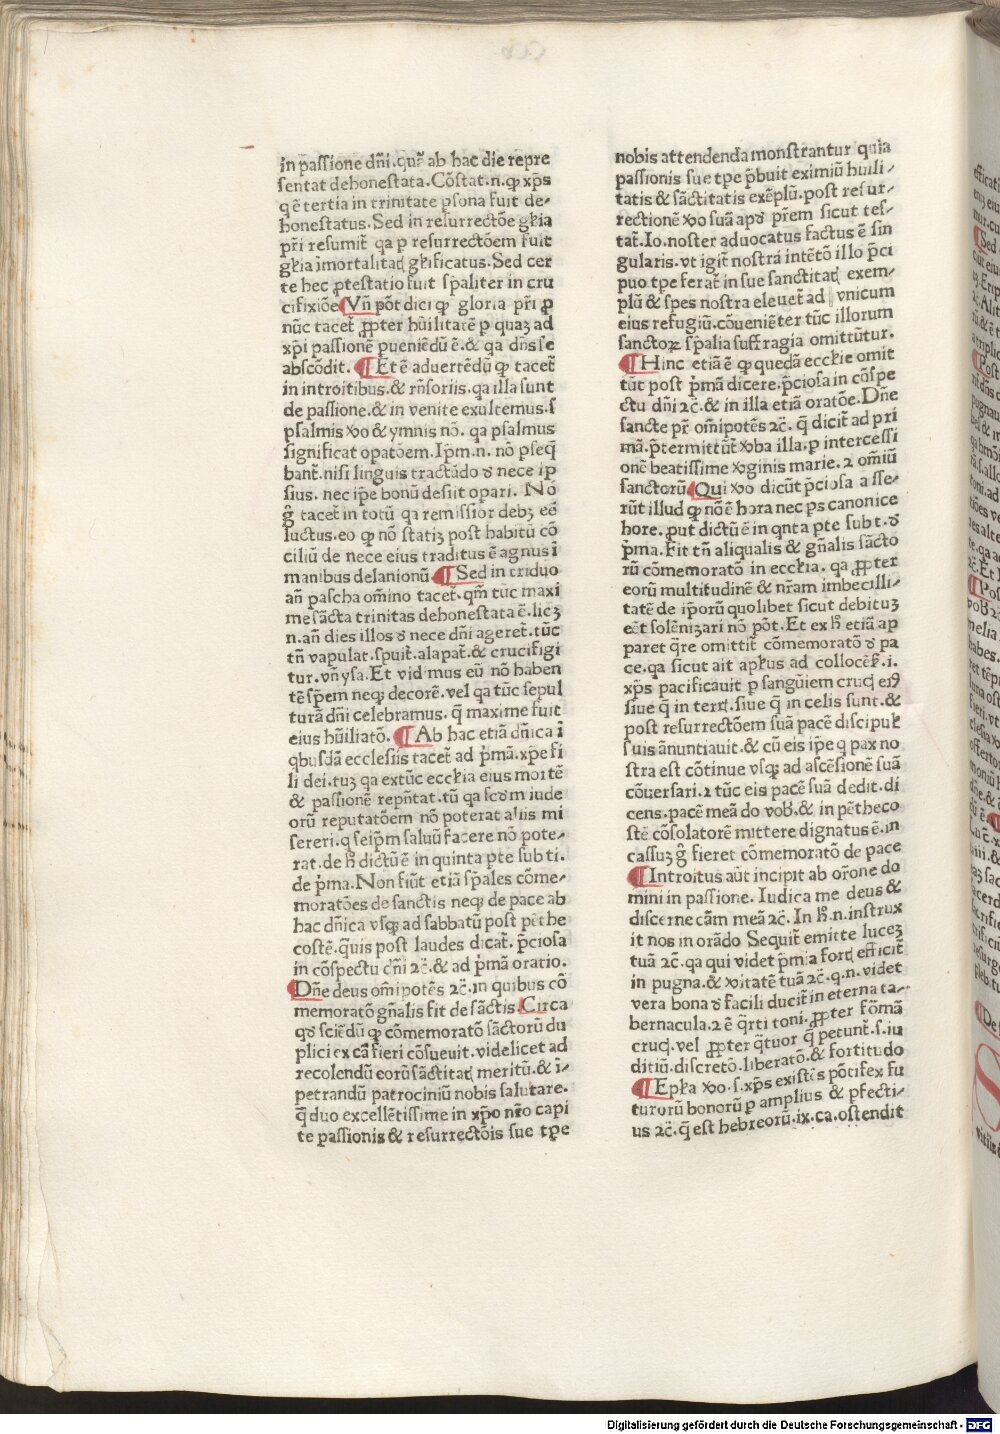 in passione dñi. quã ab hac die repre
sentat dehonestata. Cõstat. n. ꝙ xp̃s
q ẽ tertia in trinitate ꝑsona fuit de-
honestatus. Sed in resurrectõe gľia
pr̃i resumit̃ qa ꝑ resurrectõem fuit
gľia ĩmortalitatꝭ gľificatus. Sed cer
te hec ꝓtestatio fuit sp̃aliter in cru
cifixiõe ¶ Vñ põt dici ꝙ gloria pr̃i ꝓ
nũc tacet̃ ꝓpter hũilitatẽ ꝑ quaꝫ ad
xp̃i passionẽ pueniẽdũ ẽ. & qa dñs se
abscõdit. ¶ Et ẽ aduertẽdũ ꝙ tacet̃
in introitibus. & rñsoriis. qa illa sunt
de passione. & in venite exultemus. s
psalmis ꝟo & ymnis nõ. qa psalmus
significat opatõem. Ip̃m. n. nõ pseq̃
bant̃. nisi linguis tractãdo ð nece ip
sius. nec ip̃e bonũ desiit opari. Nõ
g̊ tacet̃ in totũ qa remissior debꝫ eẽ
luctus. eo ꝙ nõ statiꝫ post habitũ cõ
ciliũ de nece eius traditus ẽ agnus ĩ
manibus delanionũ. ¶ Sed in triduo
añ pascha om̃ino tacet̃. qm̃ tũc maxi
me sãcta trinitas dehonestata ẽ. licꝫ
n. añ dies illos ð nece dñi ageret̃. tũc
tñ vapulat̃. spuit̃. alapat̃. & crucifigi
tur. vñ ysa. Et vidimus eũ nõ haben
tẽ sp̃em neqꝫ decorẽ. vel qa tũc sepul
turã dñi celebramus. q̃ maxime fuit
eius hũiliatõ. ¶ Ab hac etiã dñica ĩ
qbusdã ecclesiis tacet̃ ad p̾mã. xp̃e fi
li dei. tuꝫ qa extũc eccľia eius mortẽ
& passionẽ repñtat. tũ qa scðm iude
orũ reputatõem nõ poterat aliis mi
sereri. q seip̃m saluũ facere nõ pote-
rat. de h̾ dictũ ẽ in quinta pte sub ti.
de p̾ma. Non fiũt etiã sp̃ales cõme-
moratões de sanctis neqꝫ de pace ab
hac dñica vsqꝫ ad sabbatũ post pẽthe
costẽ. q̃uis post laudes dicat̃. p̃ciosa
in cõspectu dñi ⁊c̃. & ad p̾mã oratio.
Dñe deus om̃ipotẽs ⁊c̃. in quibus cõ
memoratõ gñalis fit de sãctis. Circa
qð sciẽdũ ꝙ cõmemoratõ sãctorũ du
plici ex cã fieri cõsueuit. videlicet ad
recolendũ eorũ sãctitatꝭ meritũ. & ĩ-
petrandũ patrociniũ nobis salutare.
q̃ duo excellẽtissime in xp̃o nr̃o capi
te passionis & resurrectõis sue tp̃e
nobis attendenda monstrantur quia
passionis sue tp̃e p̃buit eximiũ hũili-
tatis & sãctitatis exẽplũ. post resur-
rectionẽ ꝟo suã apð pr̃em sicut tes-
tat̃. Io. noster aduocatus factus ẽ sin
gularis. vt igit̃ nostra intẽtõ illo p̃ci
puo tp̃e ferat̃ in sue sanctitatꝭ exem-
plũ & spes nostra eleuet̃ ad vnicum
eius refugiũ. cõueniẽter tũc illorum
sanctoꝝ sp̃alia suffragia omittũtur.
¶ Hinc etiã ẽ ꝙ quedã eccľie omit
tũt post p̾mã dicere. p̃ciosa in cõspe
ctu dñi ⁊c̃. & in illa etiã oratõe. Dñe
sancte pr̃ om̃ipotẽs ⁊c̃. q̃ dicit̃ ad pri
mã. p̃termittũt̃ ꝟba illa. ꝑ intercessi
onẽ beatissime ꝟginis marie. ⁊ om̃iũ
sanctorũ ¶ Qui ꝟo dicũt p̃ciosa asse-
rũt illud ꝙ nõ ẽ hora nec ps canonice
hore. put dictũ ẽ in qnta pte sub t. ð
p̾ma. Fit tñ aliqualis & gñalis sãcto
rũ cõmemoratõ in eccľia. qa ꝓpter
eorũ multitudinẽ & nr̃am imbecilli-
tatẽ de ip̃orũ quolibet sicut debituꝫ
eẽt solẽnizari nõ põt. Et ex h̾ etiã ap
paret q̃re omittit̃ cõmemoratõ ð pa
ce. qa sicut ait apľus ad collocẽs̃. i.
xp̃s pacificauit ꝑ sanguiem crucꝭ eiꝰ
siue q̃ in terrꝭ. siue q̃ in celis sunt. &
post resurrectõem suã pacẽ discipuľ
suis ãnuntiauit. & cũ eis ip̃e q pax no
stra est cõtinue vsqꝫ ad ascẽsionẽ suã
cõuersari. ⁊ tũc eis pacẽ suã dedit. di
cens. pacẽ meã do vob̃. & in pẽtheco
stẽ cõsolatorẽ mittere dignatus ẽ. in
cassuꝫ g̊ fieret cõmemoratõ de pace
¶ Introitus aũt incipit ab or̃one do
mini in passione. Iudica me deus &
discerne cãm meã ⁊c̃. In h̾. n. instrux
it nos in orãdo Sequit̃ emitte luceꝫ
tuã ⁊c̃. qa qui videt p̃mia fortꝭ efficit̃
in pugna. & ꝟitatẽ tuã ⁊c̃. q. n. videt
vera bona ð facili ducit̃ in eterna ta-
bernacula. ⁊ ẽ q̃rti toni. ꝓpter fõmã
crucꝭ. vel ꝓpter q̃tuor q̃ petunt̃. s. iu
ditiũ. discretõ. liberatõ. & fortitudo
¶ Epľa ꝟo. s. xp̃s existẽs põtifex fu
turorũ bonorũ ꝑ amplius & pfecti-
us ⁊c̃. q̃ est hebreorũ. ix. ca. ostendit
Digitalisierung gefördert durch die Deutsche Forschungsgemeinschaft - DFG